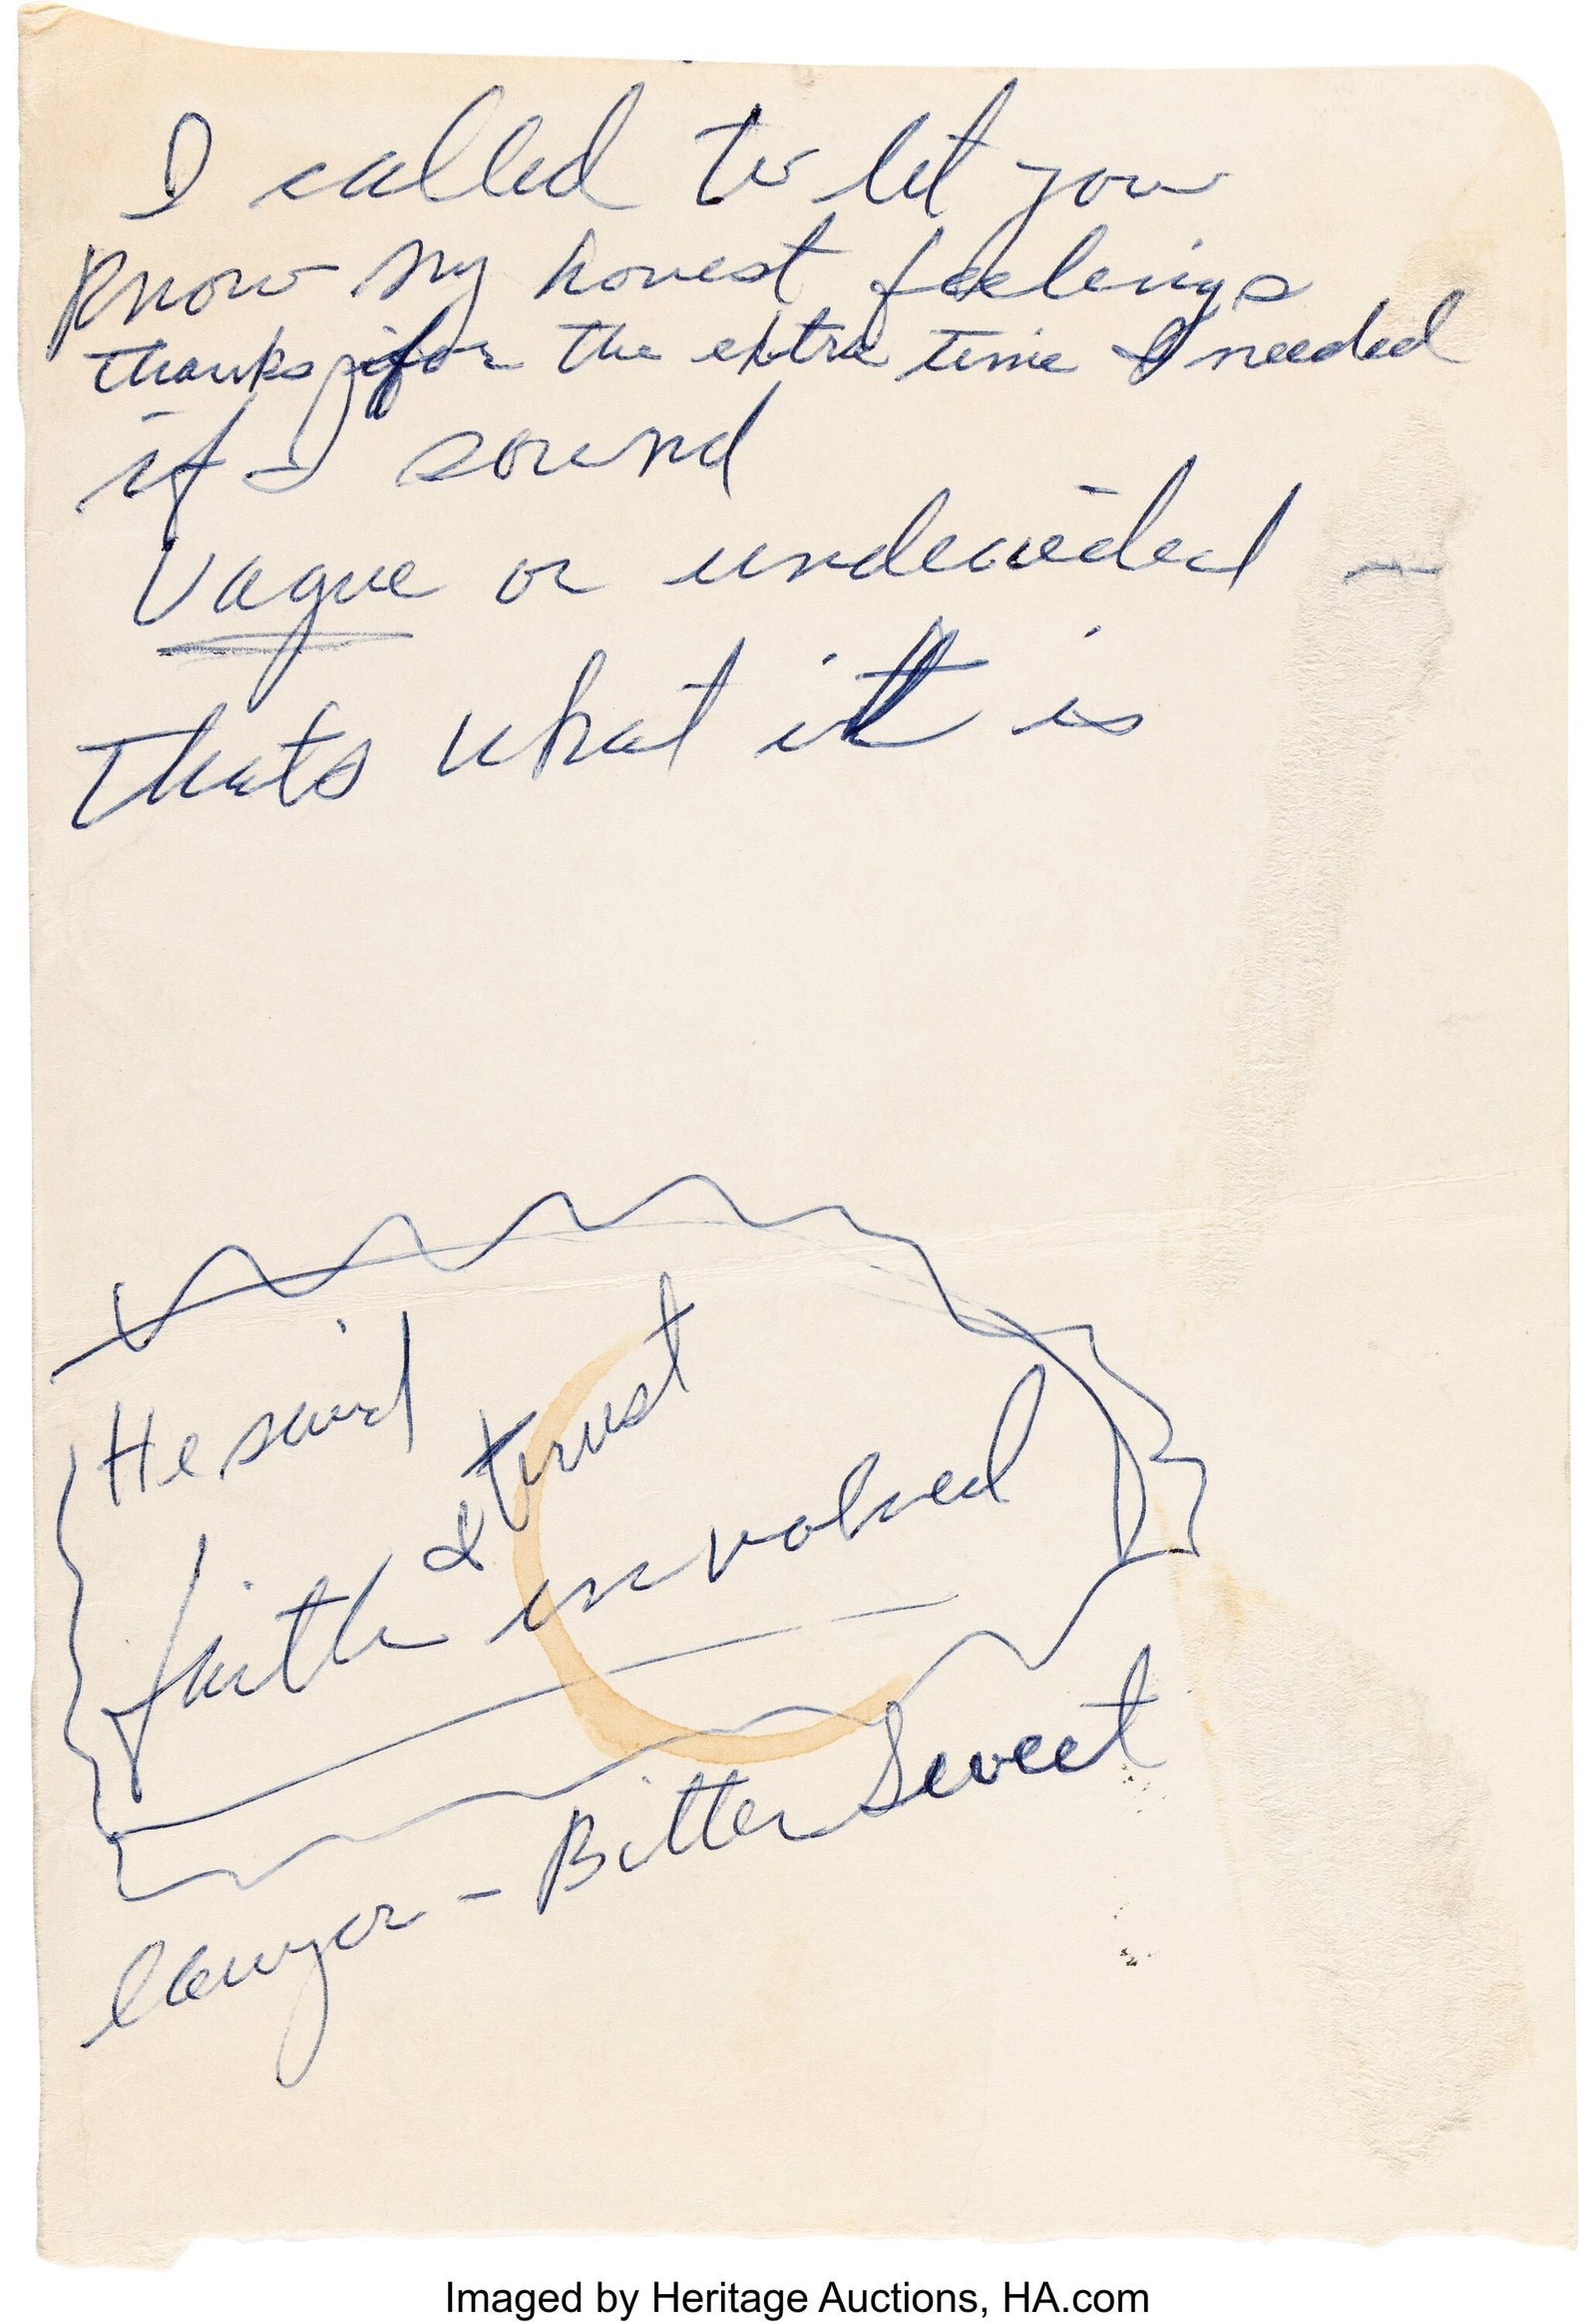 I called to let you
know my honest feelings
thanks for the extra time I needed
if I sound
Vague or undecided —
Thats what it is
He said
& trust
faith involved
lawyer - Bitter Sweet
Imaged by Heritage Auctions, HA.com